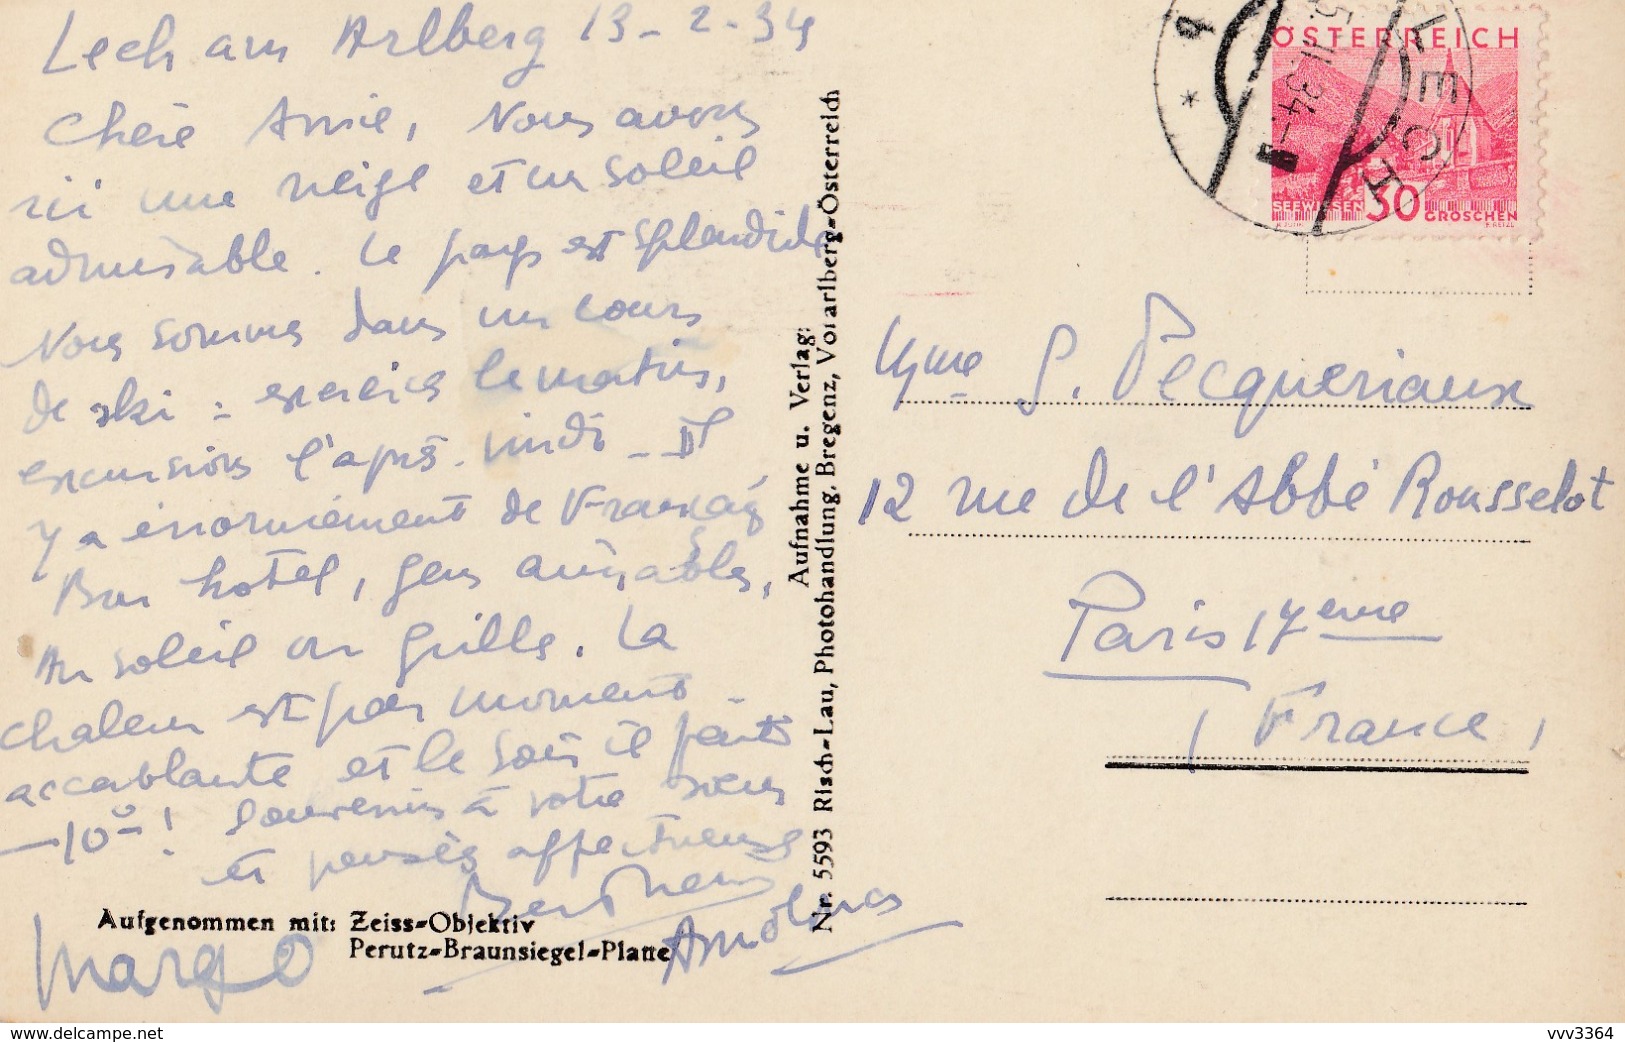 Lech am Arlberg 13-2-34
Chère Amie, Nous avons
ici une neige et un soleil
admirable. Le pays est splendide
Nous sommes dans un cours
de ski : exercices le matin,
excursions l'après-midi - Il
y a énormément de Français
Bon hôtel, gens aimables,
Au soleil on grille. La
chaleur est par moments
accablante et le soir il fait
-10°! Souvenirs à votre sœur
et pensées affectueuses
Margo
Aufgenommen mit: Zeiss-Objektiv
Perutz-Braunsiegel-Platte
Aufnahme u. Verlag:
Nr. 5593 Risch-Lau, Photohandlung, Bregenz, Vorarlberg-Österreich
LECH
5.II.34
ÖSTERREICH
SEEWIESEN 30 GROSCHEN
Mme S. Pecqueriaux
12 rue de l'Abbé Rousselot
Paris 17eme
(France)
www.delcampe.net
vvv3364